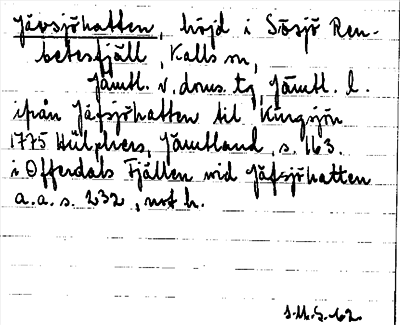 Jävsjöhatten, höjd i Sösjö Ren-
betesfjäll, Kalls sn,
Jämtl. v. doms. tg, Jämtl. l.
ifrån Jäfsjöhatten til Kingsjön
1775 Hülphers, Jämtland, s. 163.
i Offerdals Fjällen wid Jäfsjöhatten
a.a. s. 232, not h.
S.M.G. 62.